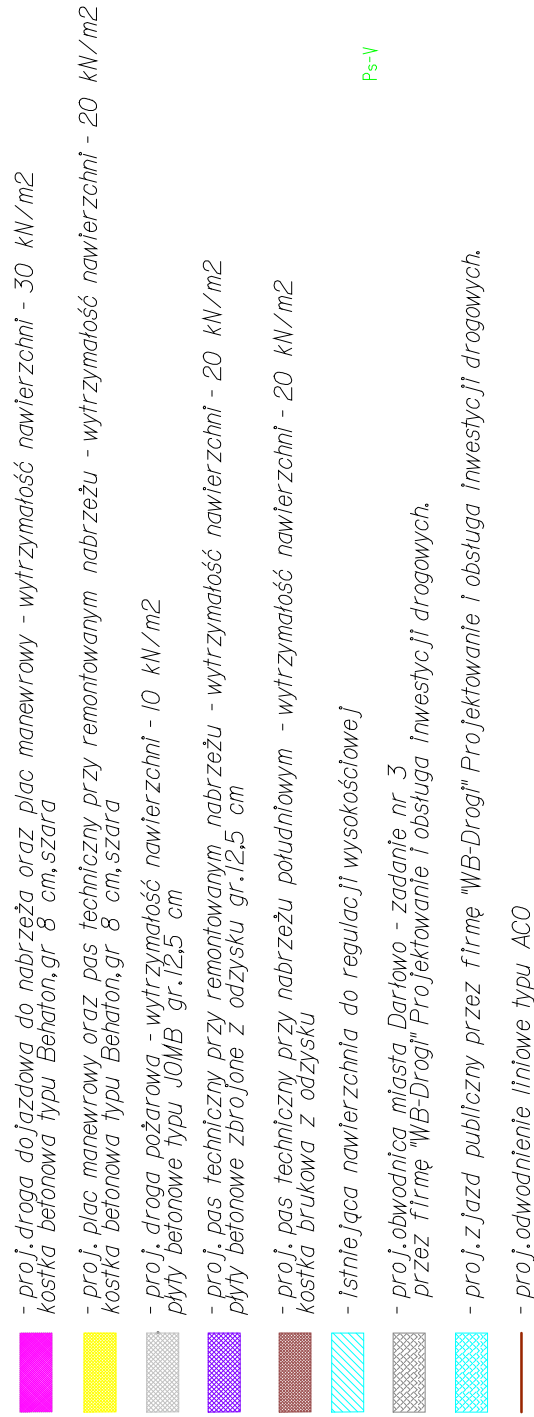 - proj. droga dojazdowa do nabrzeża oraz plac manewrowy - wytrzymałość nawierzchni - 30 kN/m2
kostka betonowa typu Behaton,gr 8 cm,szara
- proj. plac manewrowy oraz pas techniczny przy remontowanym nabrzeżu - wytrzymałość nawierzchni - 20 kN/m2
kostka betonowa typu Behaton,gr 8 cm,szara
- proj. droga pożarowa - wytrzymałość nawierzchni - 10 kN/m2
płyty betonowe typu JOMB gr.12,5 cm
- proj. pas techniczny przy remontowanym nabrzeżu - wytrzymałość nawierzchni - 20 kN/m2
płyty betonowe zbrojone z odzysku gr.12,5 cm
- proj. pas techniczny przy nabrzeżu południowym - wytrzymałość nawierzchni - 20 kN/m2
kostka brukowa z odzysku
- istniejąca nawierzchnia do regulacji wysokościowej
- proj.obwodnica miasta Darłowo - zadanie nr 3
przez firmę "WB-Drogi" Projektowanie i obsługa inwestycji drogowych.
- proj.zjazd publiczny przez firmę "WB-Drogi" Projektowanie i obsługa inwestycji drogowych.
- proj.odwodnienie liniowe typu ACO
Ps-V